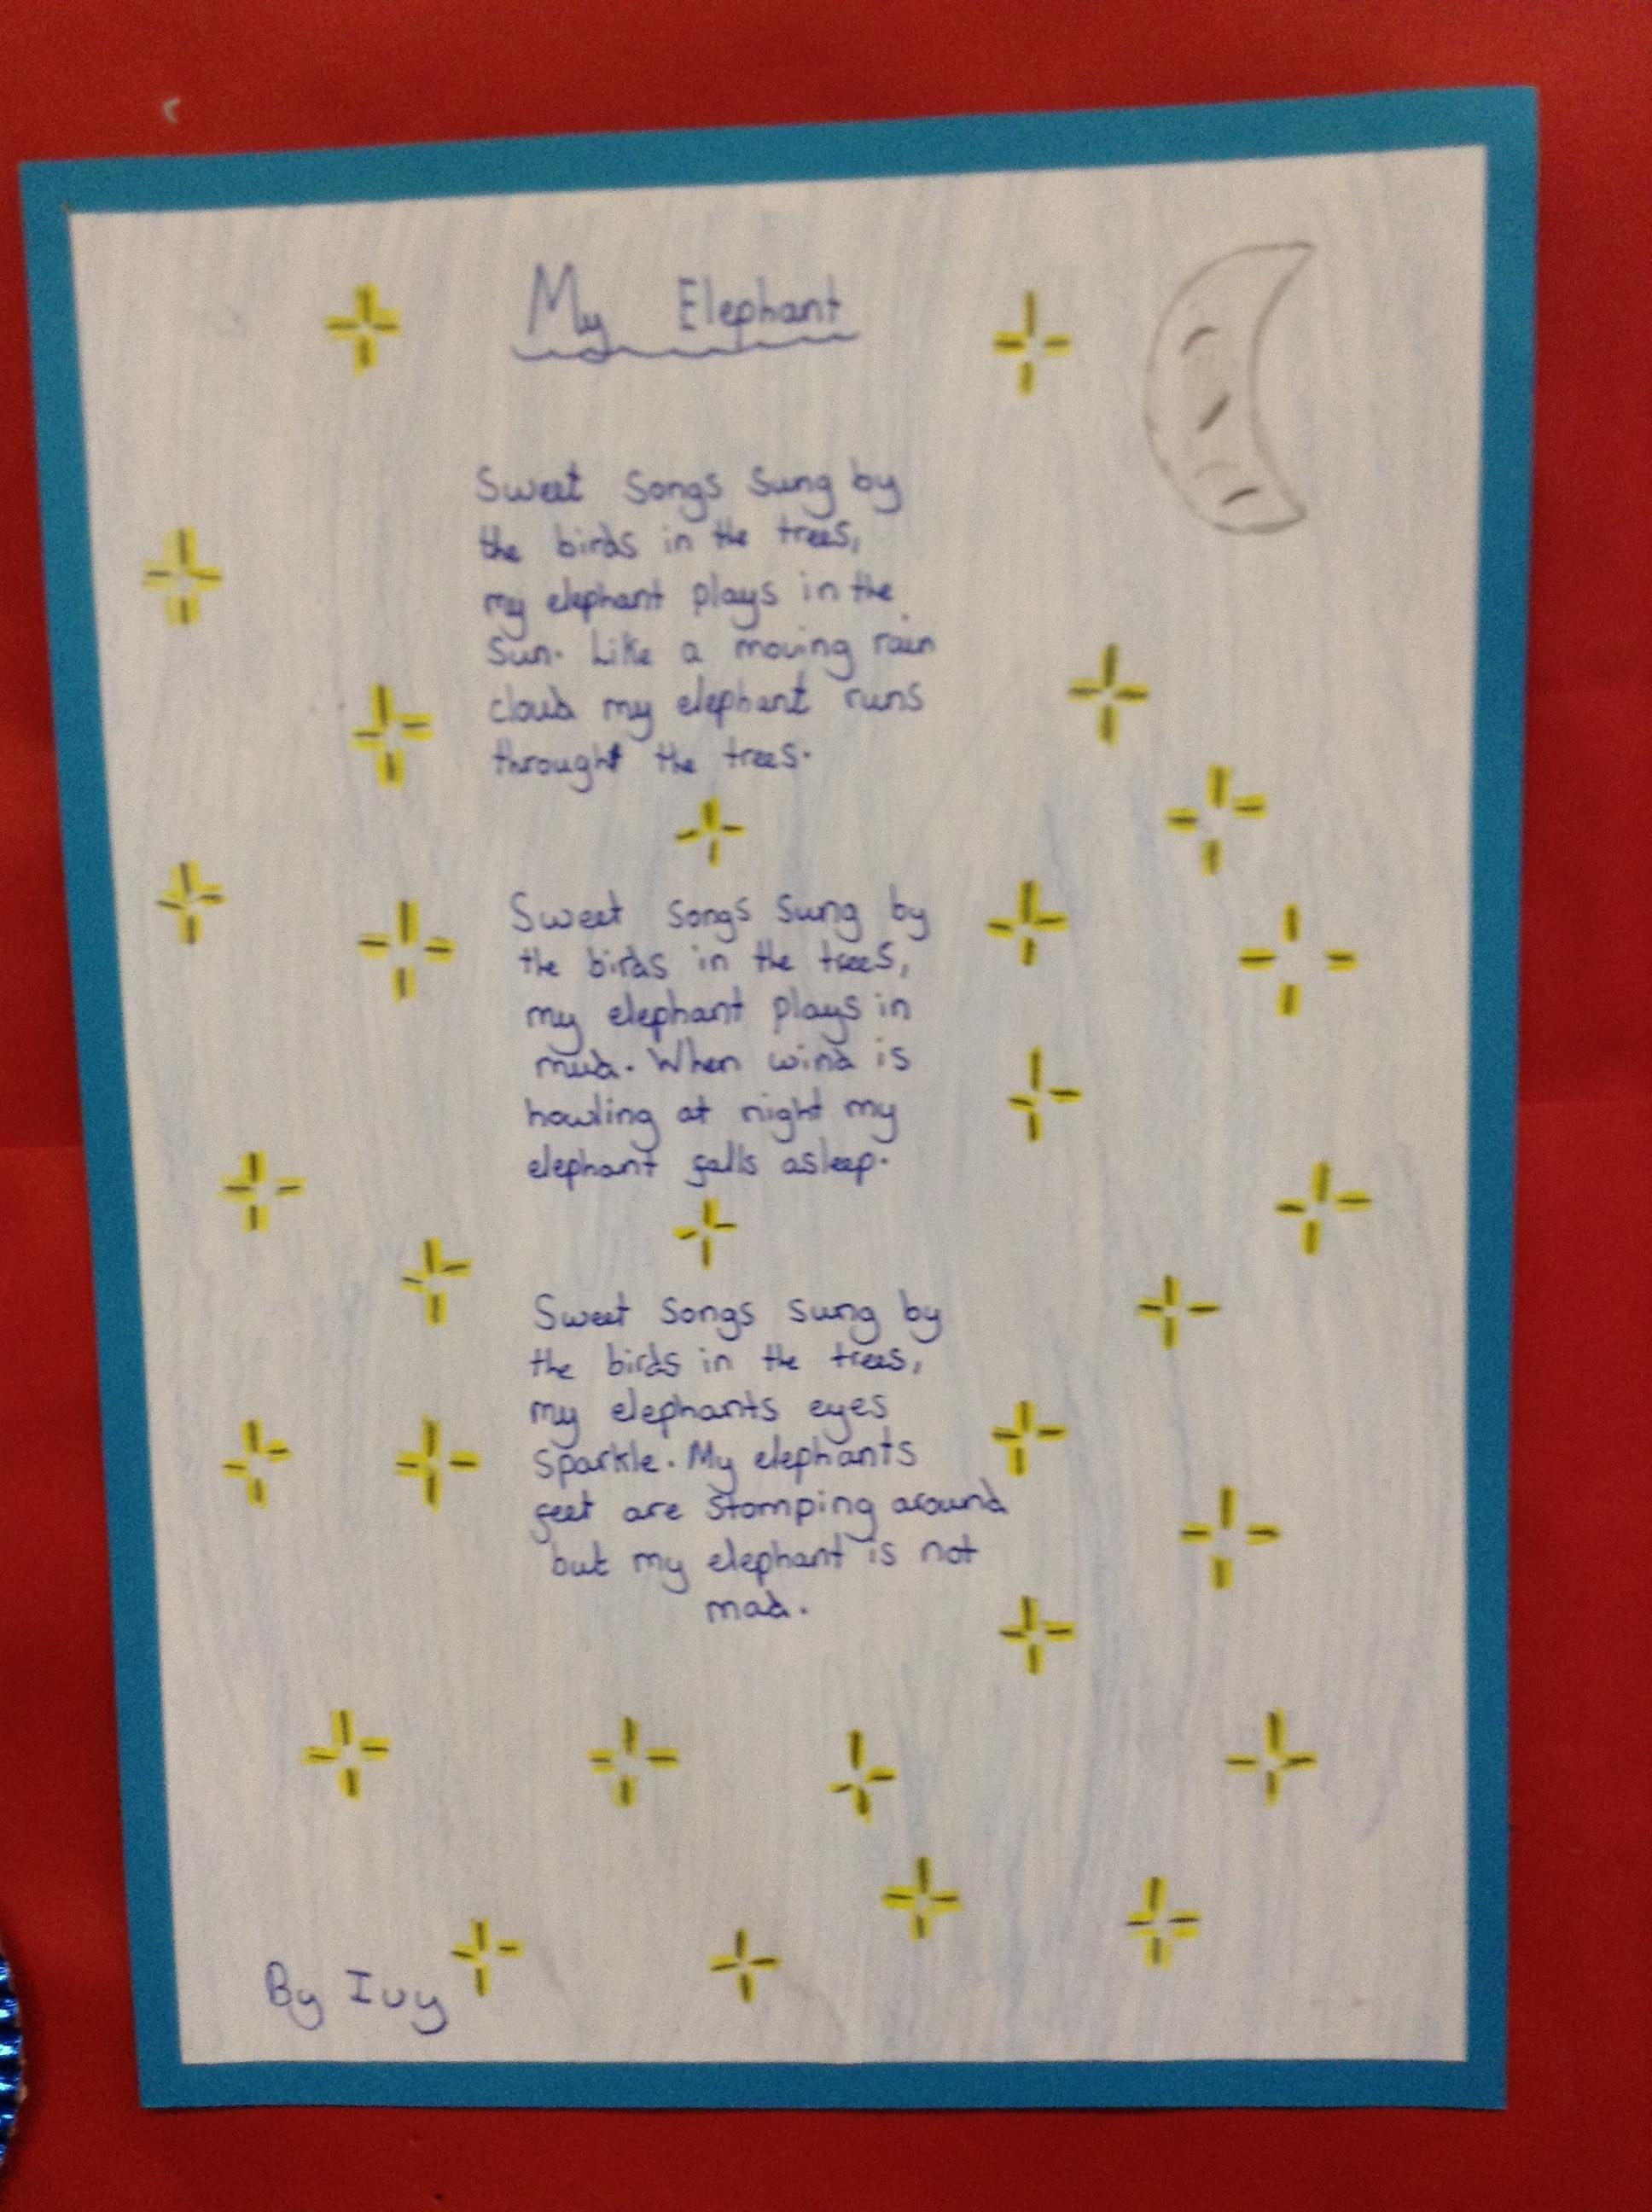 My Elephant
Sweet Songs Sung by
the birds in the trees,
my elephant plays in the
Sun. Like a moving rain
cloud my elephant runs
throught the trees.
Sweet Songs Sung by
the birds in the trees,
my elephant plays in
mud. When wind is
howling at night my
elephant falls asleep.
Sweet Songs Sung by
the birds in the trees,
my elephants eyes
Sparkle. My elephants
feet are Stomping around
but my elephant is not
mad.
By Ivy